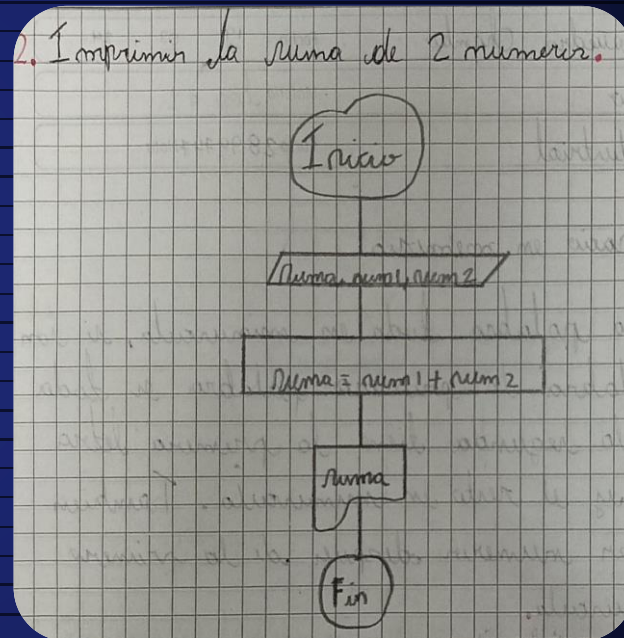 2. Imprimir la suma de 2 numeros.
Inicio
suma, num1, num2
suma = num1 + num2
suma
Fin